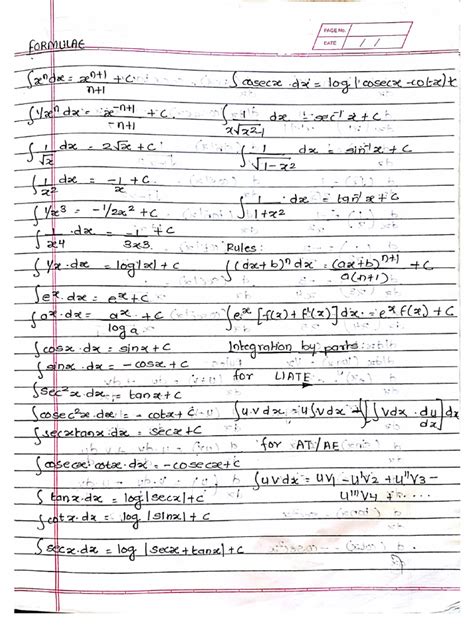 PAGE No.
DATE / /
FORMULAE
∫xⁿdx = xⁿ⁺¹/n+1 + C
∫cosecx·dx = log|cosecx-cotx|+
∫1/xⁿ dx = x⁻ⁿ⁺¹/-n+1 + C
∫1/x√x²-1 dx = sec⁻¹x + C
∫1/√x dx = 2√x + C
∫1/√1-x² dx = sin⁻¹x + C
∫1/x² dx = -1/x + C
∫1/1+x² ·dx = tan⁻¹x + C
∫1/x³ = -1/2x² + C
∫1/x4 ·dx = -1/3x3 + C
Rules:
∫1/x·dx = log|x| + C
∫(ax+b)ⁿdx = (ax+b)ⁿ⁺¹/a(n+1) + C
∫eˣ·dx = eˣ + C
∫aˣ·dx = aˣ/log a + C
∫eˣ[f(x)+f'(x)]dx = eˣ f(x) + C
∫cosx·dx = sinx + C
Integration by parts
∫sinx·dx = -cosx + C
for LIATE
∫sec²x·dx = tanx + C
∫cosec²x·dx = -cotx + C
∫u·vdx = u∫vdx - ∫[∫vdx · du/dx]dx
∫secxtanx·dx = secx + C
for AT/AE
∫cosecx cotx·dx = -cosecx + C
∫uvdx = uv1 - u'v2 + u''v3 -
u'''v4 + ....
∫tanx·dx = log|secx| + C
∫cotx·dx = log|sinx| + C
∫secx·dx = log|secx+tanx| + C